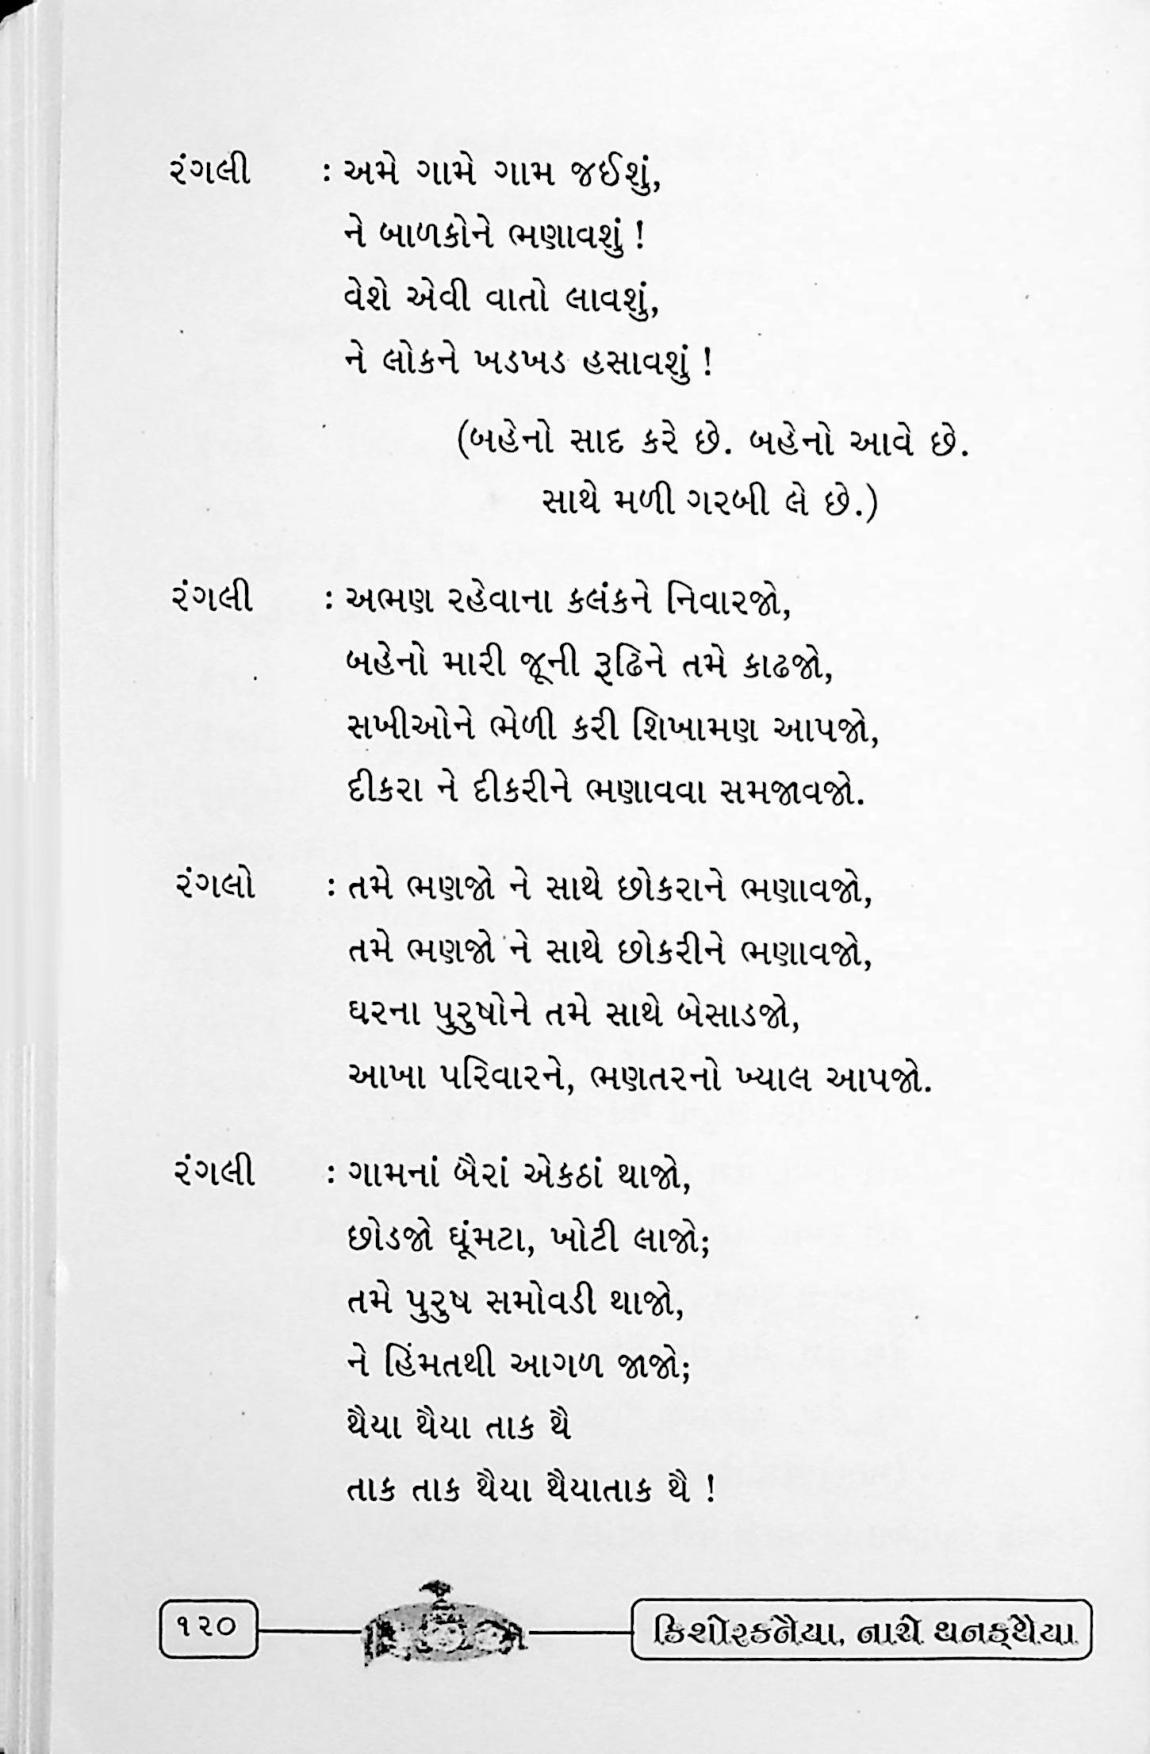 રંગલી : અમે ગામે ગામ જઈશું,
ને બાળકોને ભણાવશું !
વેશે એવી વાતો લાવશું,
ને લોકને ખડખડ હસાવશું !
(બહેનો સાદ કરે છે. બહેનો આવે છે.
સાથે મળી ગરબી લે છે.)
રંગલી : અભણ રહેવાના કલંકને નિવારજો,
બહેનો મારી જૂની રૂઢિને તમે કાઢજો,
સખીઓને ભેળી કરી શિખામણ આપજો,
દીકરા ને દીકરીને ભણાવવા સમજાવજો.
રંગલો : તમે ભણજો ને સાથે છોકરાને ભણાવજો,
તમે ભણજો ને સાથે છોકરીને ભણાવજો,
ઘરના પુરુષોને તમે સાથે બેસાડજો,
આખા પરિવારને, ભણતરનો ખ્યાલ આપજો.
રંગલી : ગામનાં બૈરાં એકઠાં થાજો,
છોડજો ઘૂંમટા, ખોટી લાજો;
તમે પુરુષ સમોવડી થાજો,
ને હિંમતથી આગળ જાજો;
થૈયા થૈયા તાક થૈ
તાક તાક થૈયા થૈયાતાક થૈ !
૧૨૦ કિશોરકનૈયા, નાચે થનક્થૈયા